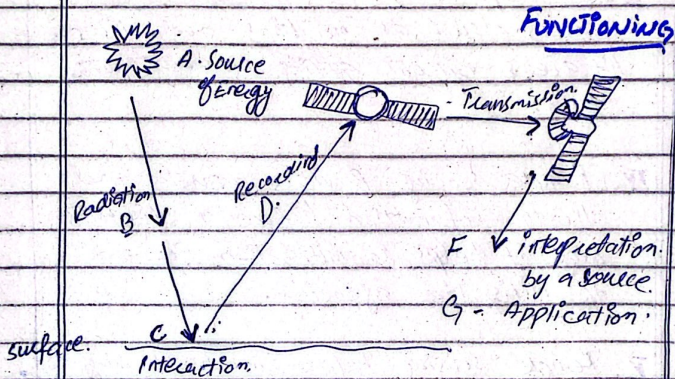 FUNCTIONING
A. Source
of Energy
Transmission.
Radiation
B
Recording
D.
F interpretation.
by a source.
G - Application.
C
surface.
Interaction.